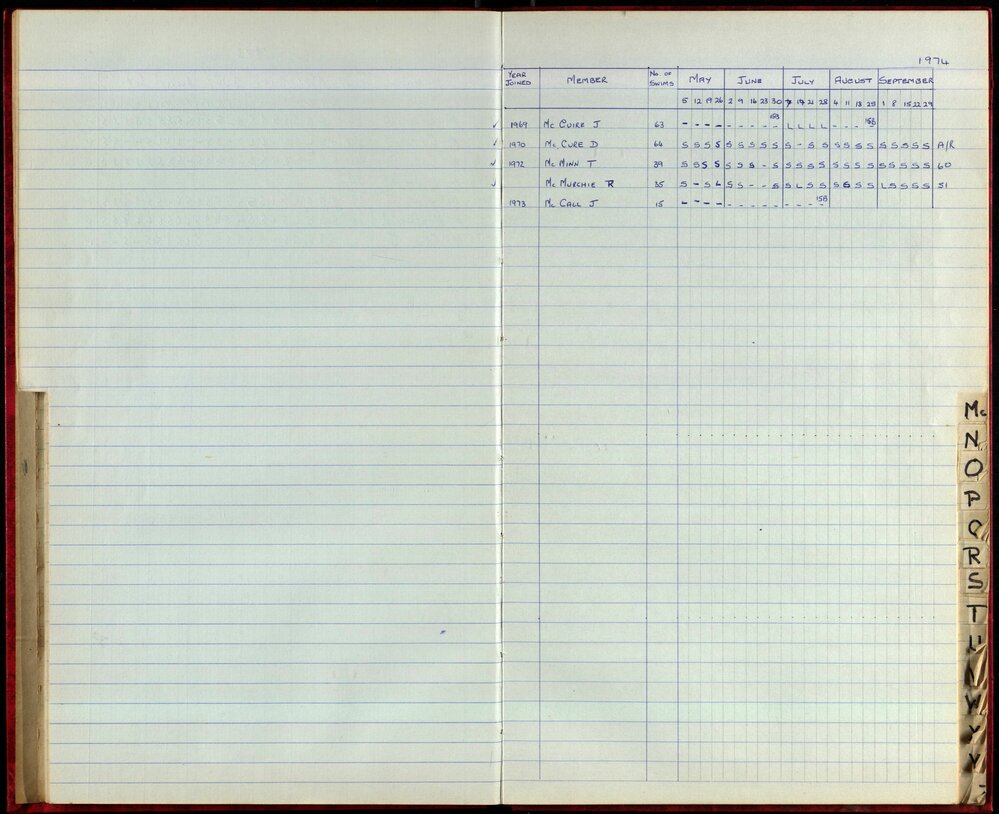 1974
YEAR JOINED MEMBER No. OF SWIMS MAY JUNE JULY AUGUST SEPTEMBER
5 12 19 26 2 9 16 23 30 7 14 21 28 4 11 18 25 1 8 15 22 29
158 158
✓ 1969 Mc GUIRE J 63 - - - - - - - - - L L L L - - -
✓ 1970 Mc CURE D 64 S S S S S S S S S S - S S S S S S S S S S S A/R
✓ 1972 Mc MINN T 39 S S S S S S S - S S S S S S S S S S S S S S 60
✓ Mc MURCHIE R 35 S - S L S S - - S S L S S S S S S L S S S S 51
158
1973 Mc CALL J 15 - - - - - - - - - - - -
Mc
N
O
P
Q
R
S
T
U
W
Y